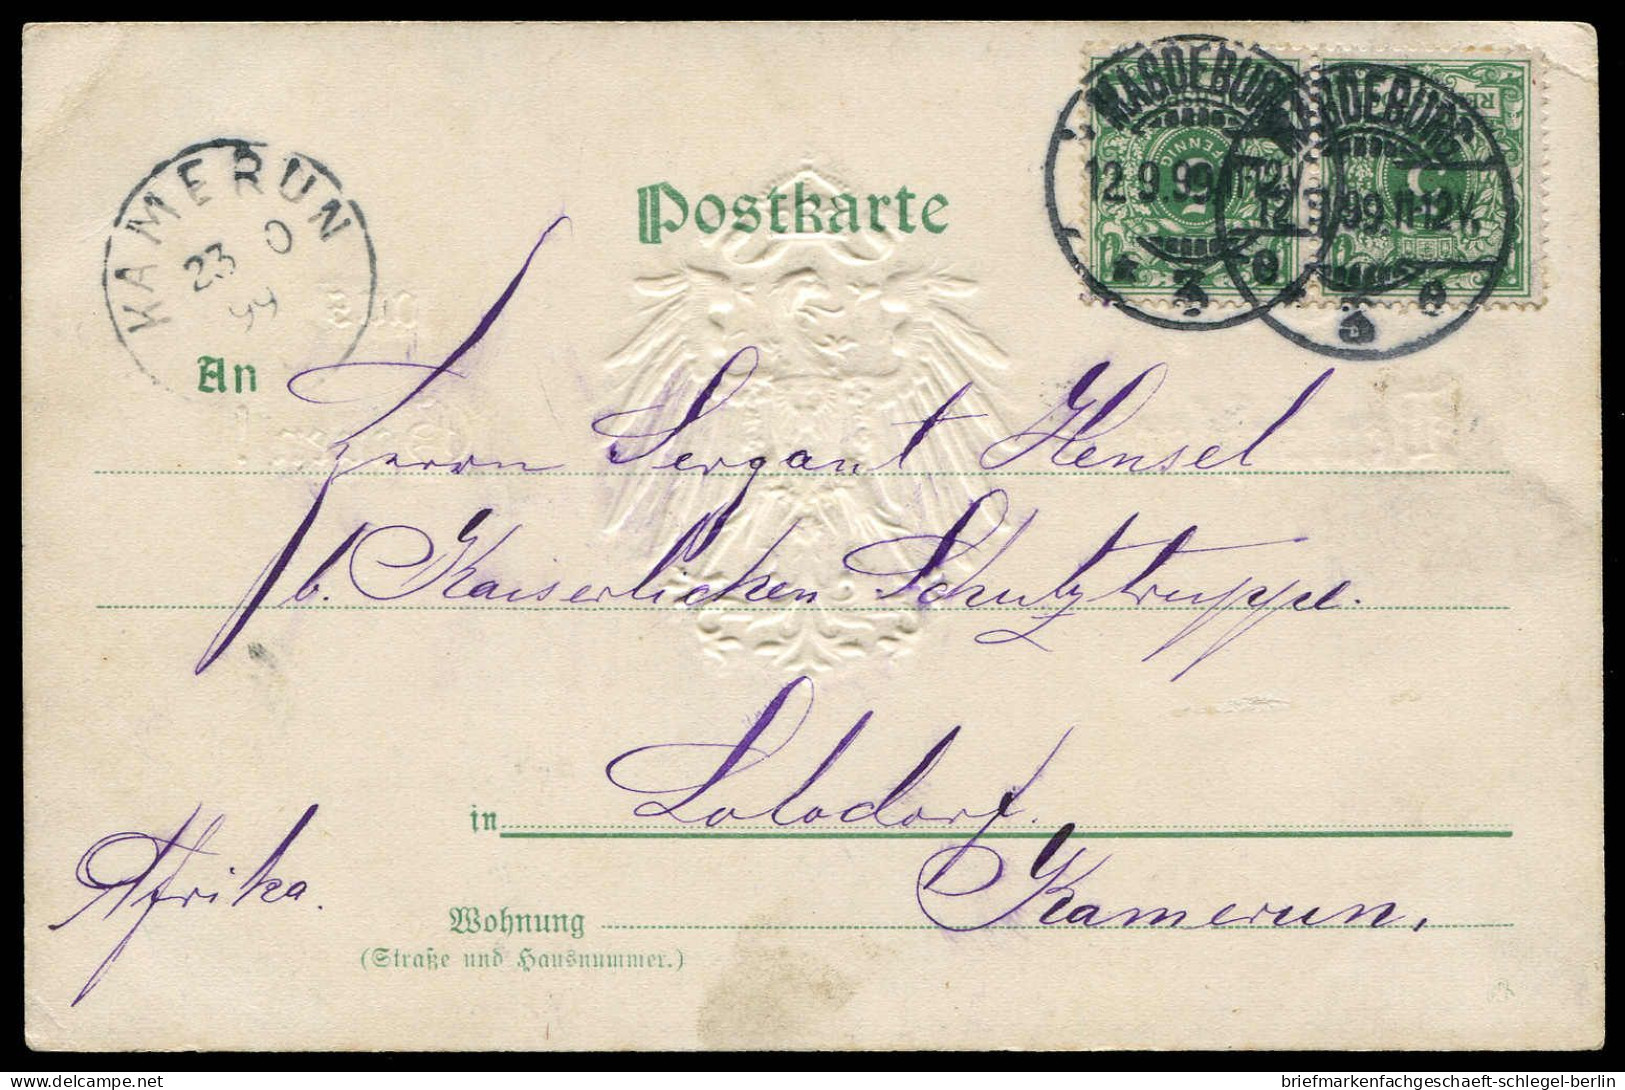 Postkarte
MAGDEBURG
12.9.99. 11-12V.
* 3 e
MAGDEBURG
12.9.99. 11-12V.
* 3 e
PFENNIG
5
KAMERUN
23
99
An
Herrn Sergant Hensel
b. Kaiserlichen Schutztruppe.
in Lolodorf.
Afrika.
Kamerun,
Wohnung
(Straße und Hausnummer.)
briefmarkenfachgeschaeft-schlegel-berlin